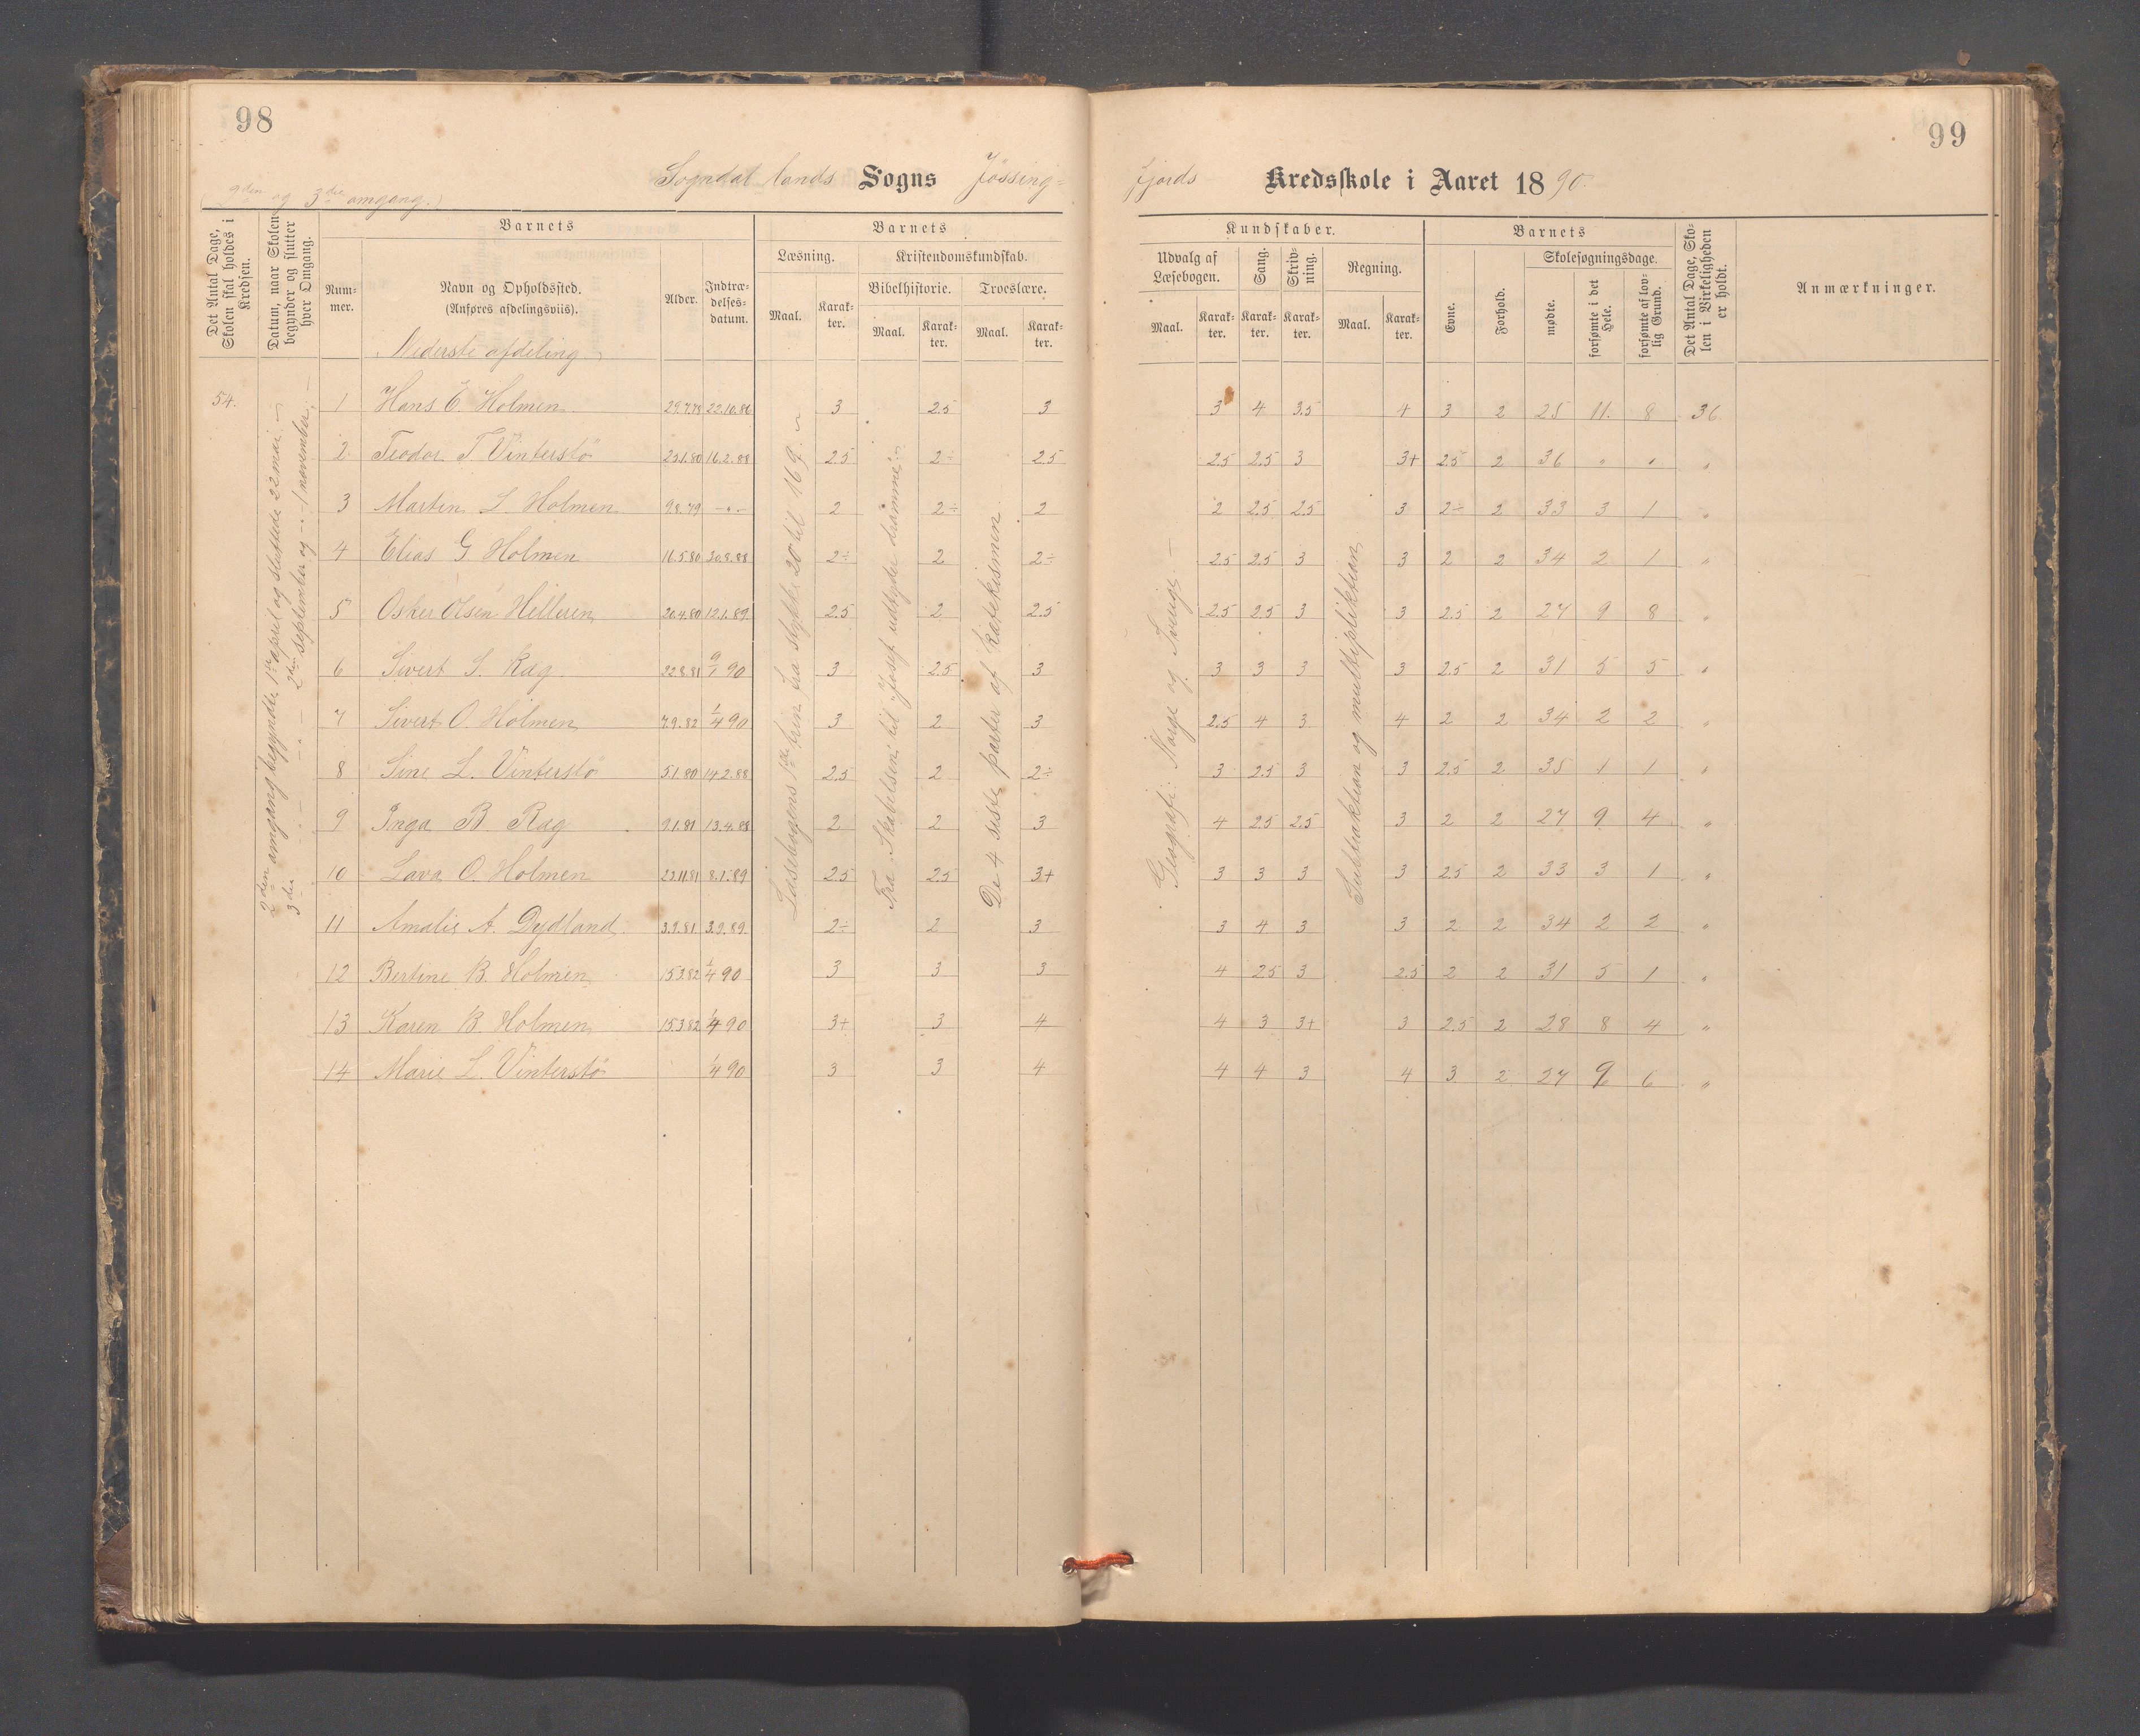 98
99
Sogndal lands Sogns Jössing=
fjords Kredsskole i Aaret 1890.
(2den og 3die omgang.)
Det Antal Dage, Skolen skal holdes i Kredsen.
Datum, naar Skolen begynder og slutter hver Omgang.
Barnets
Num-
mer.
Navn og Opholdssted.
(Anføres afdelingsviis).
Alder.
Indtræ-
delses-
datum.
Barnets
Læsning.
Kristendomskundskab.
Bibelhistorie.
Troeslære.
Maal.
Karak-
ter.
Maal.
Karak-
ter.
Maal.
Karak-
ter.
Kundskaber.
Udvalg af
Læsebogen.
Sang.
Skriv-
ning.
Regning.
Maal.
Karak-
ter.
Karak-
ter.
Karak-
ter.
Maal.
Karak-
ter.
Barnets
Evne.
Forhold.
Skolesøgningsdage.
mødte.
forsømte i det Hele.
forsømte af lov-
lig Grund.
Det Antal Dage, Sko-
len i Virkeligheden
er holdt.
Anmærkninger.
Nederste afdeling
54.
2den omgang begyndte 1ste april og sluttede 22 mai.
3die — " — " — 2den september og — " — 1 november.
Læsebogens 1ste trin fra stykke 20 til 169.
Fra "Skabelsen" til "Josef udtyder drømme".
De 4 siste parter af katekismen
Geografi: Norge og Sverige.
Subtraktion og multiplikation
1 Hans E. Holmen 29.7.78 22.10.86 3 2.5 3 3 4 3.5 4 3 2 25 11. 8 36
2 Teodor T. Vinterstö 25.1.80 16.2.88 2.5 2÷ 2.5 2.5 2.5 3 3+ 2.5 2 36 " " "
3 Martin L. Holmen 9.8.79 — " — 2 2÷ 2 2 2.5 2.5 3 2÷ 2 33 3 1 "
4 Elias G Holmen 16.5.80 20.8.88 2÷ 2 2÷ 2.5 2.5 3 3 2 2 34 2 1 "
5 Osker Olsen Helleren 20.4.80 12.1.89 2.5 2 2.5 2.5 2.5 3 3 2.5 2 27 9 8 "
6 Sivert S. Ræg 22.8.81 9/1 90 3 2.5 3 3 3 3 3 2.5 2 31 5 5 "
7 Sivert O. Holmen 7.9.82 1/4 90 3 2 3 2.5 4 3 4 2 2 34 2 2 "
8 Sine L. Vinterstö 5.1.80 14.2.88 2.5 2 2÷ 3 2.5 3 3 2.5 2 35 1 1 "
9 Inga B. Ræg 9.1.81 13.4.88 2 2 3 4 2.5 2.5 3 2 2 27 9 4 "
10 Lava O. Holmen 23.11.81 8.1.89 2.5 2.5 3+ 3 3 3 3 2.5 2 33 3 1 "
11 Amalie A. Dydland 3.9.81 3.9.89 2÷ 2 3 3 4 3 3 2 2 34 2 2 "
12 Bertine B. Holmen 15.3.82 1/4 90 3 3 3 4 2.5 3 2.5 2 2 31 5 1 "
13 Karen B. Holmen 15.3.82 1/4 90 3+ 3 4 4 3 3+ 3 2.5 2 28 8 4 "
14 Marie L. Vinterstö 1/4 90 3 3 4 4 4 3 4 3 2 27 9 6 "